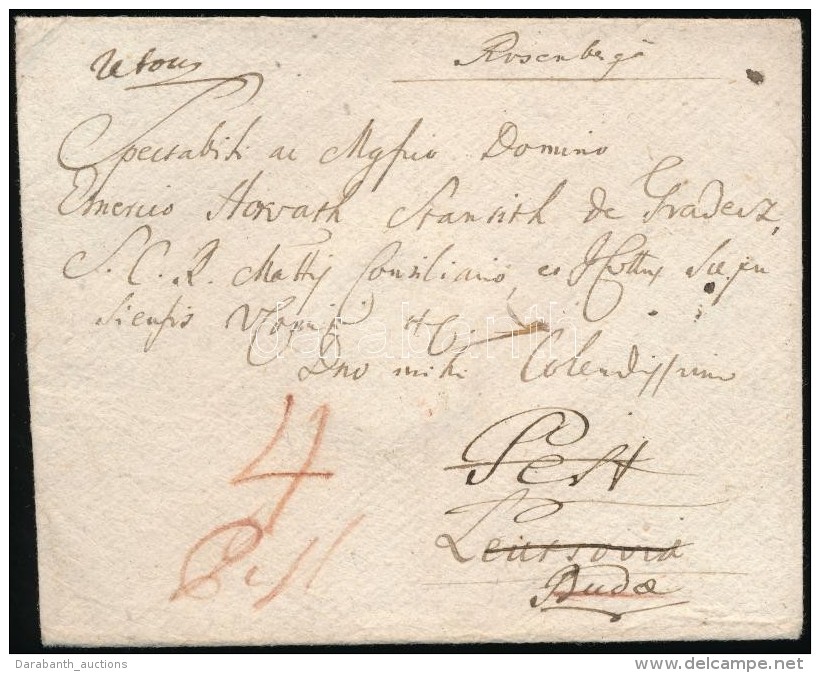 Retour
Rosenberg
Spectabili ac Mgfico Domino
Emerico Horvath Stansith de Gradecz,
S. C. R. Mattis Consiliario, et Cottus Scepu
siensis V Comiti
Dno mihi Colendissimo
4
Pest
Pest
Leutsovia
Budae
darabanth
Darabanth_auctions
www.delcampe.net